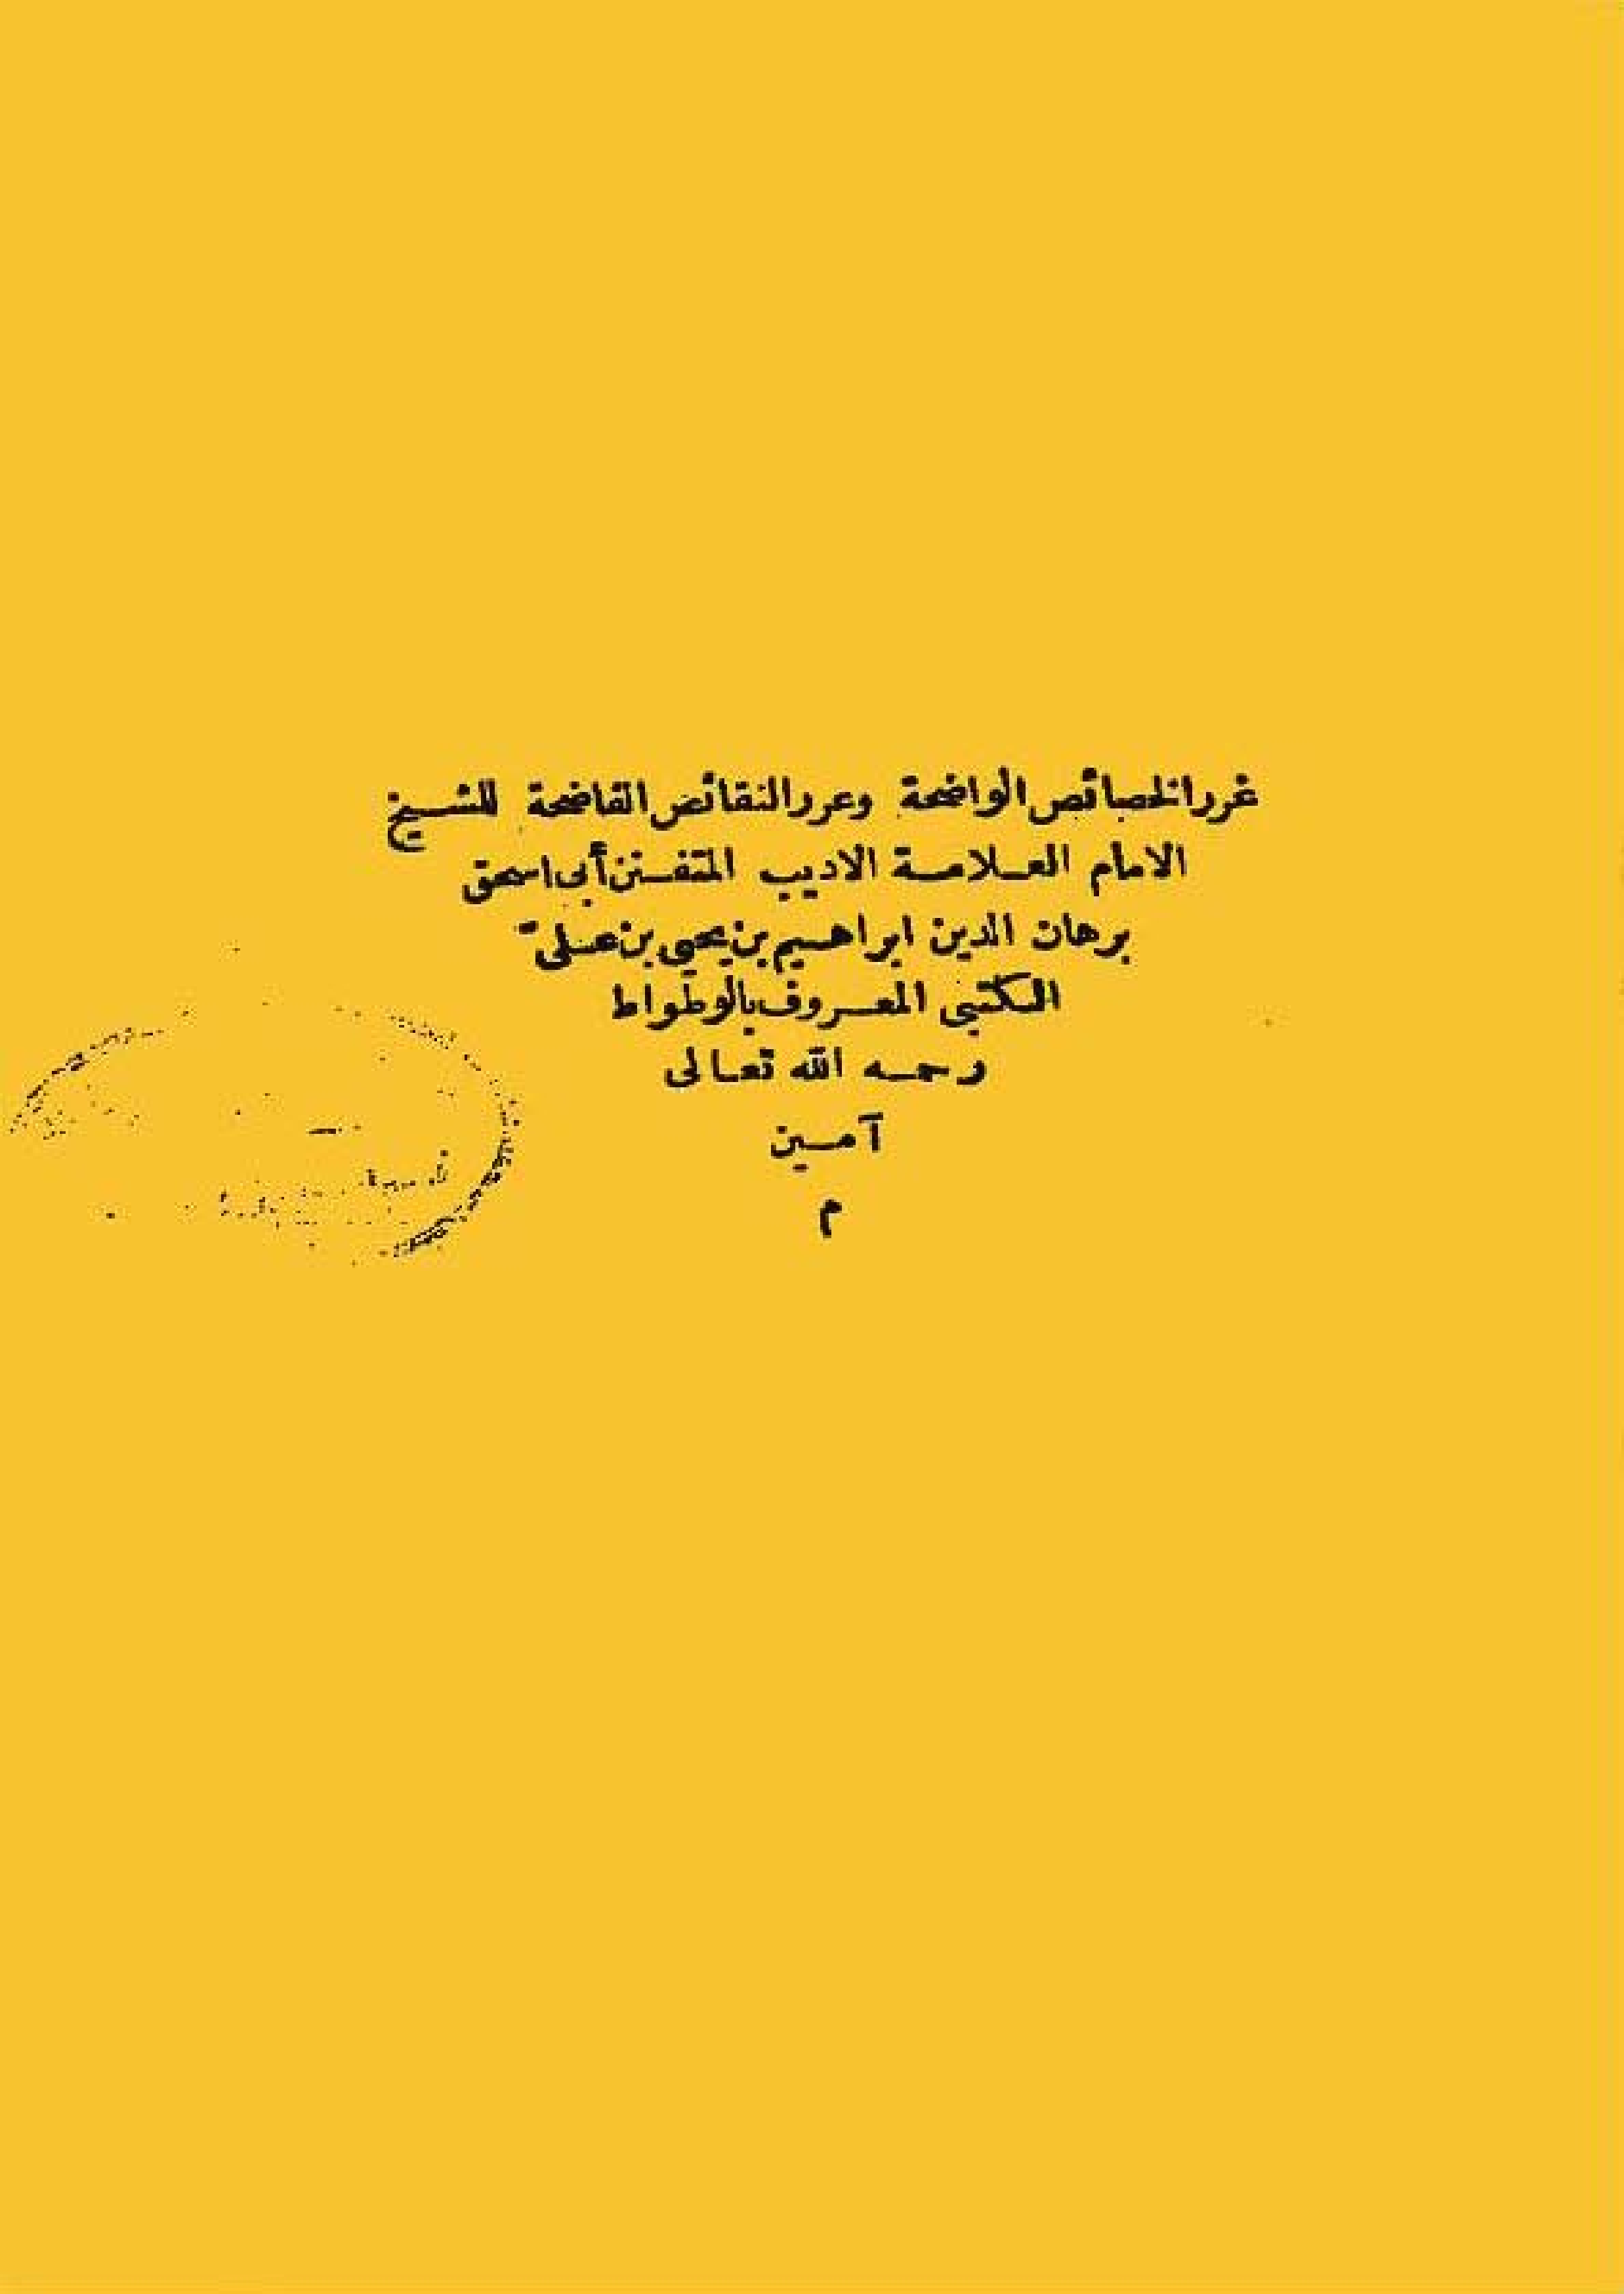 غرر الخصائص الواضحة وعرر النقائص الفاضحة للشيخ
الامام العلامة الاديب المتفنن أبى اسحق
برهان الدين ابراهيم بن يحيى بن على
الكتبى المعروف بالوطواط
رحمه الله تعالى
آمين
م